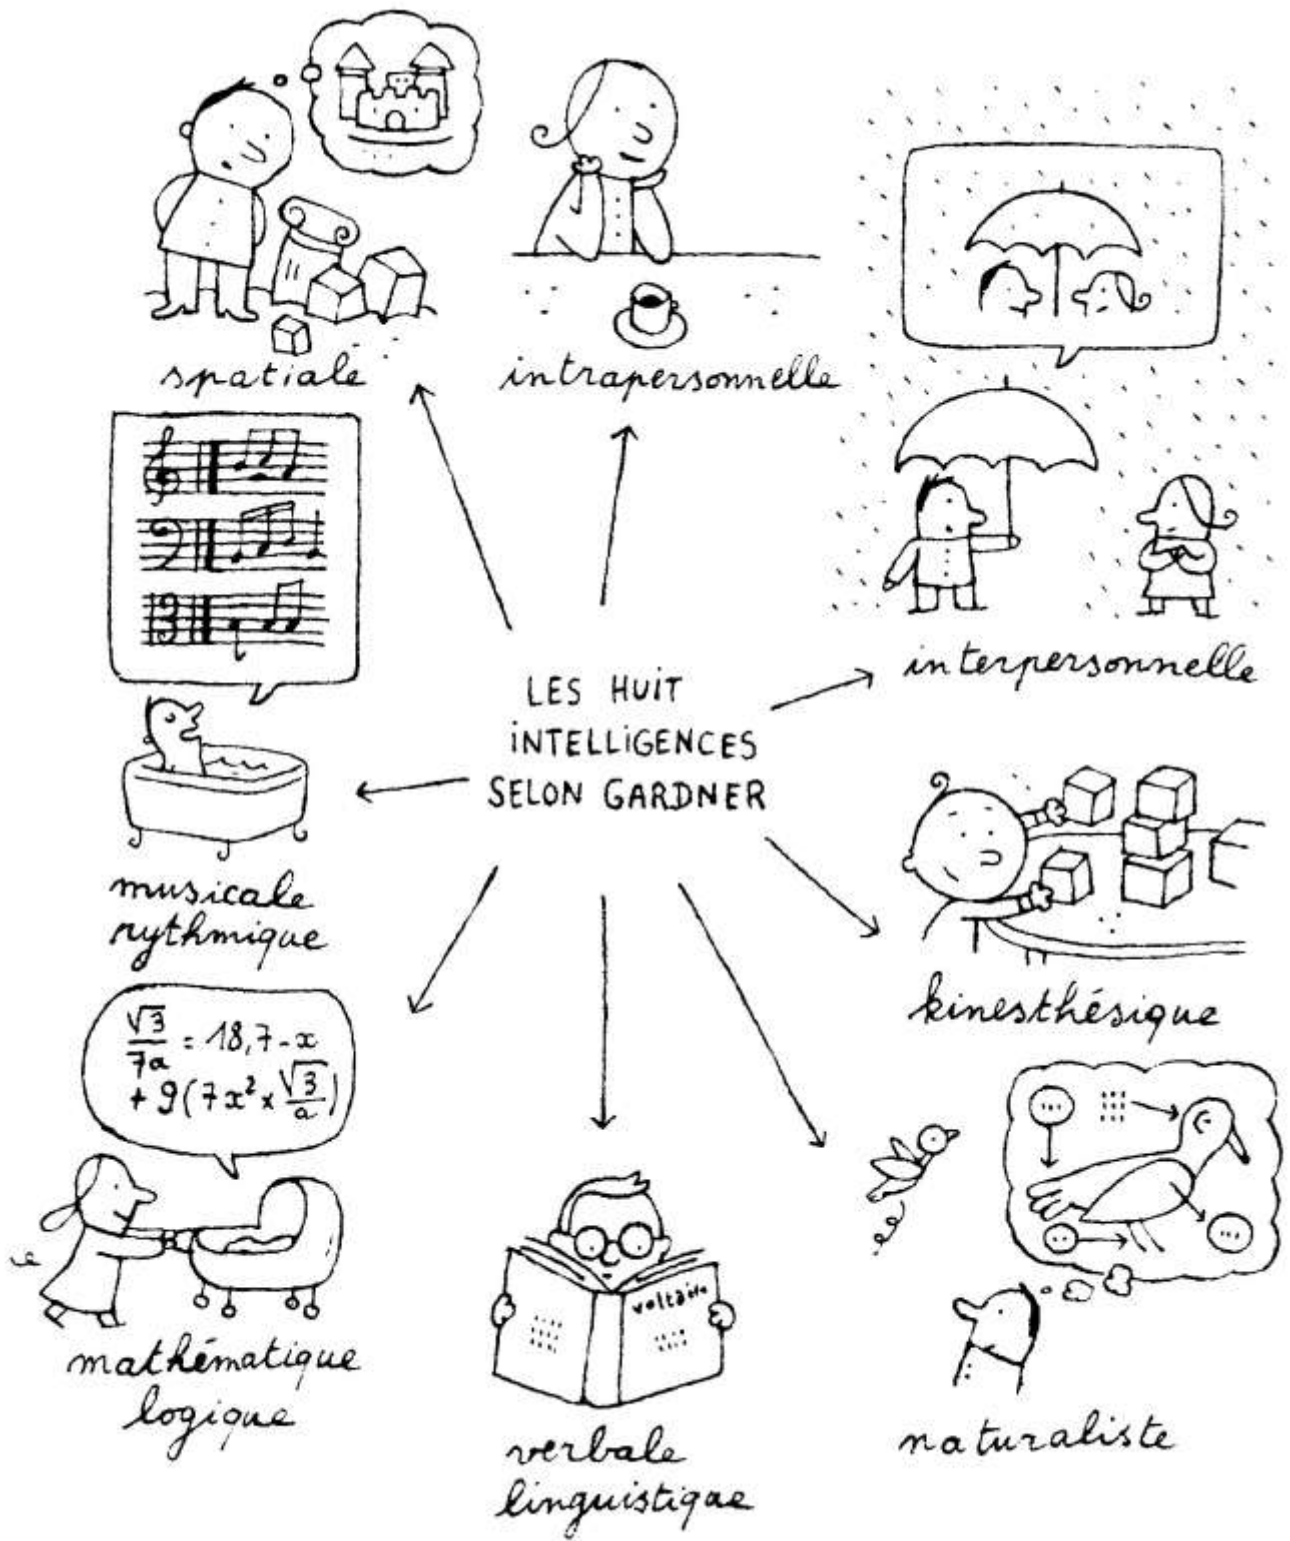 spatiale
intrapersonnelle
LES HUIT
INTELLIGENCES
SELON GARDNER
interpersonnelle
musicale
rythmique
kinesthésique
√3/7a = 18,7-x
+ 9(7x² × √3/a)
mathématique
logique
voltaire
verbale
linguistique
naturaliste